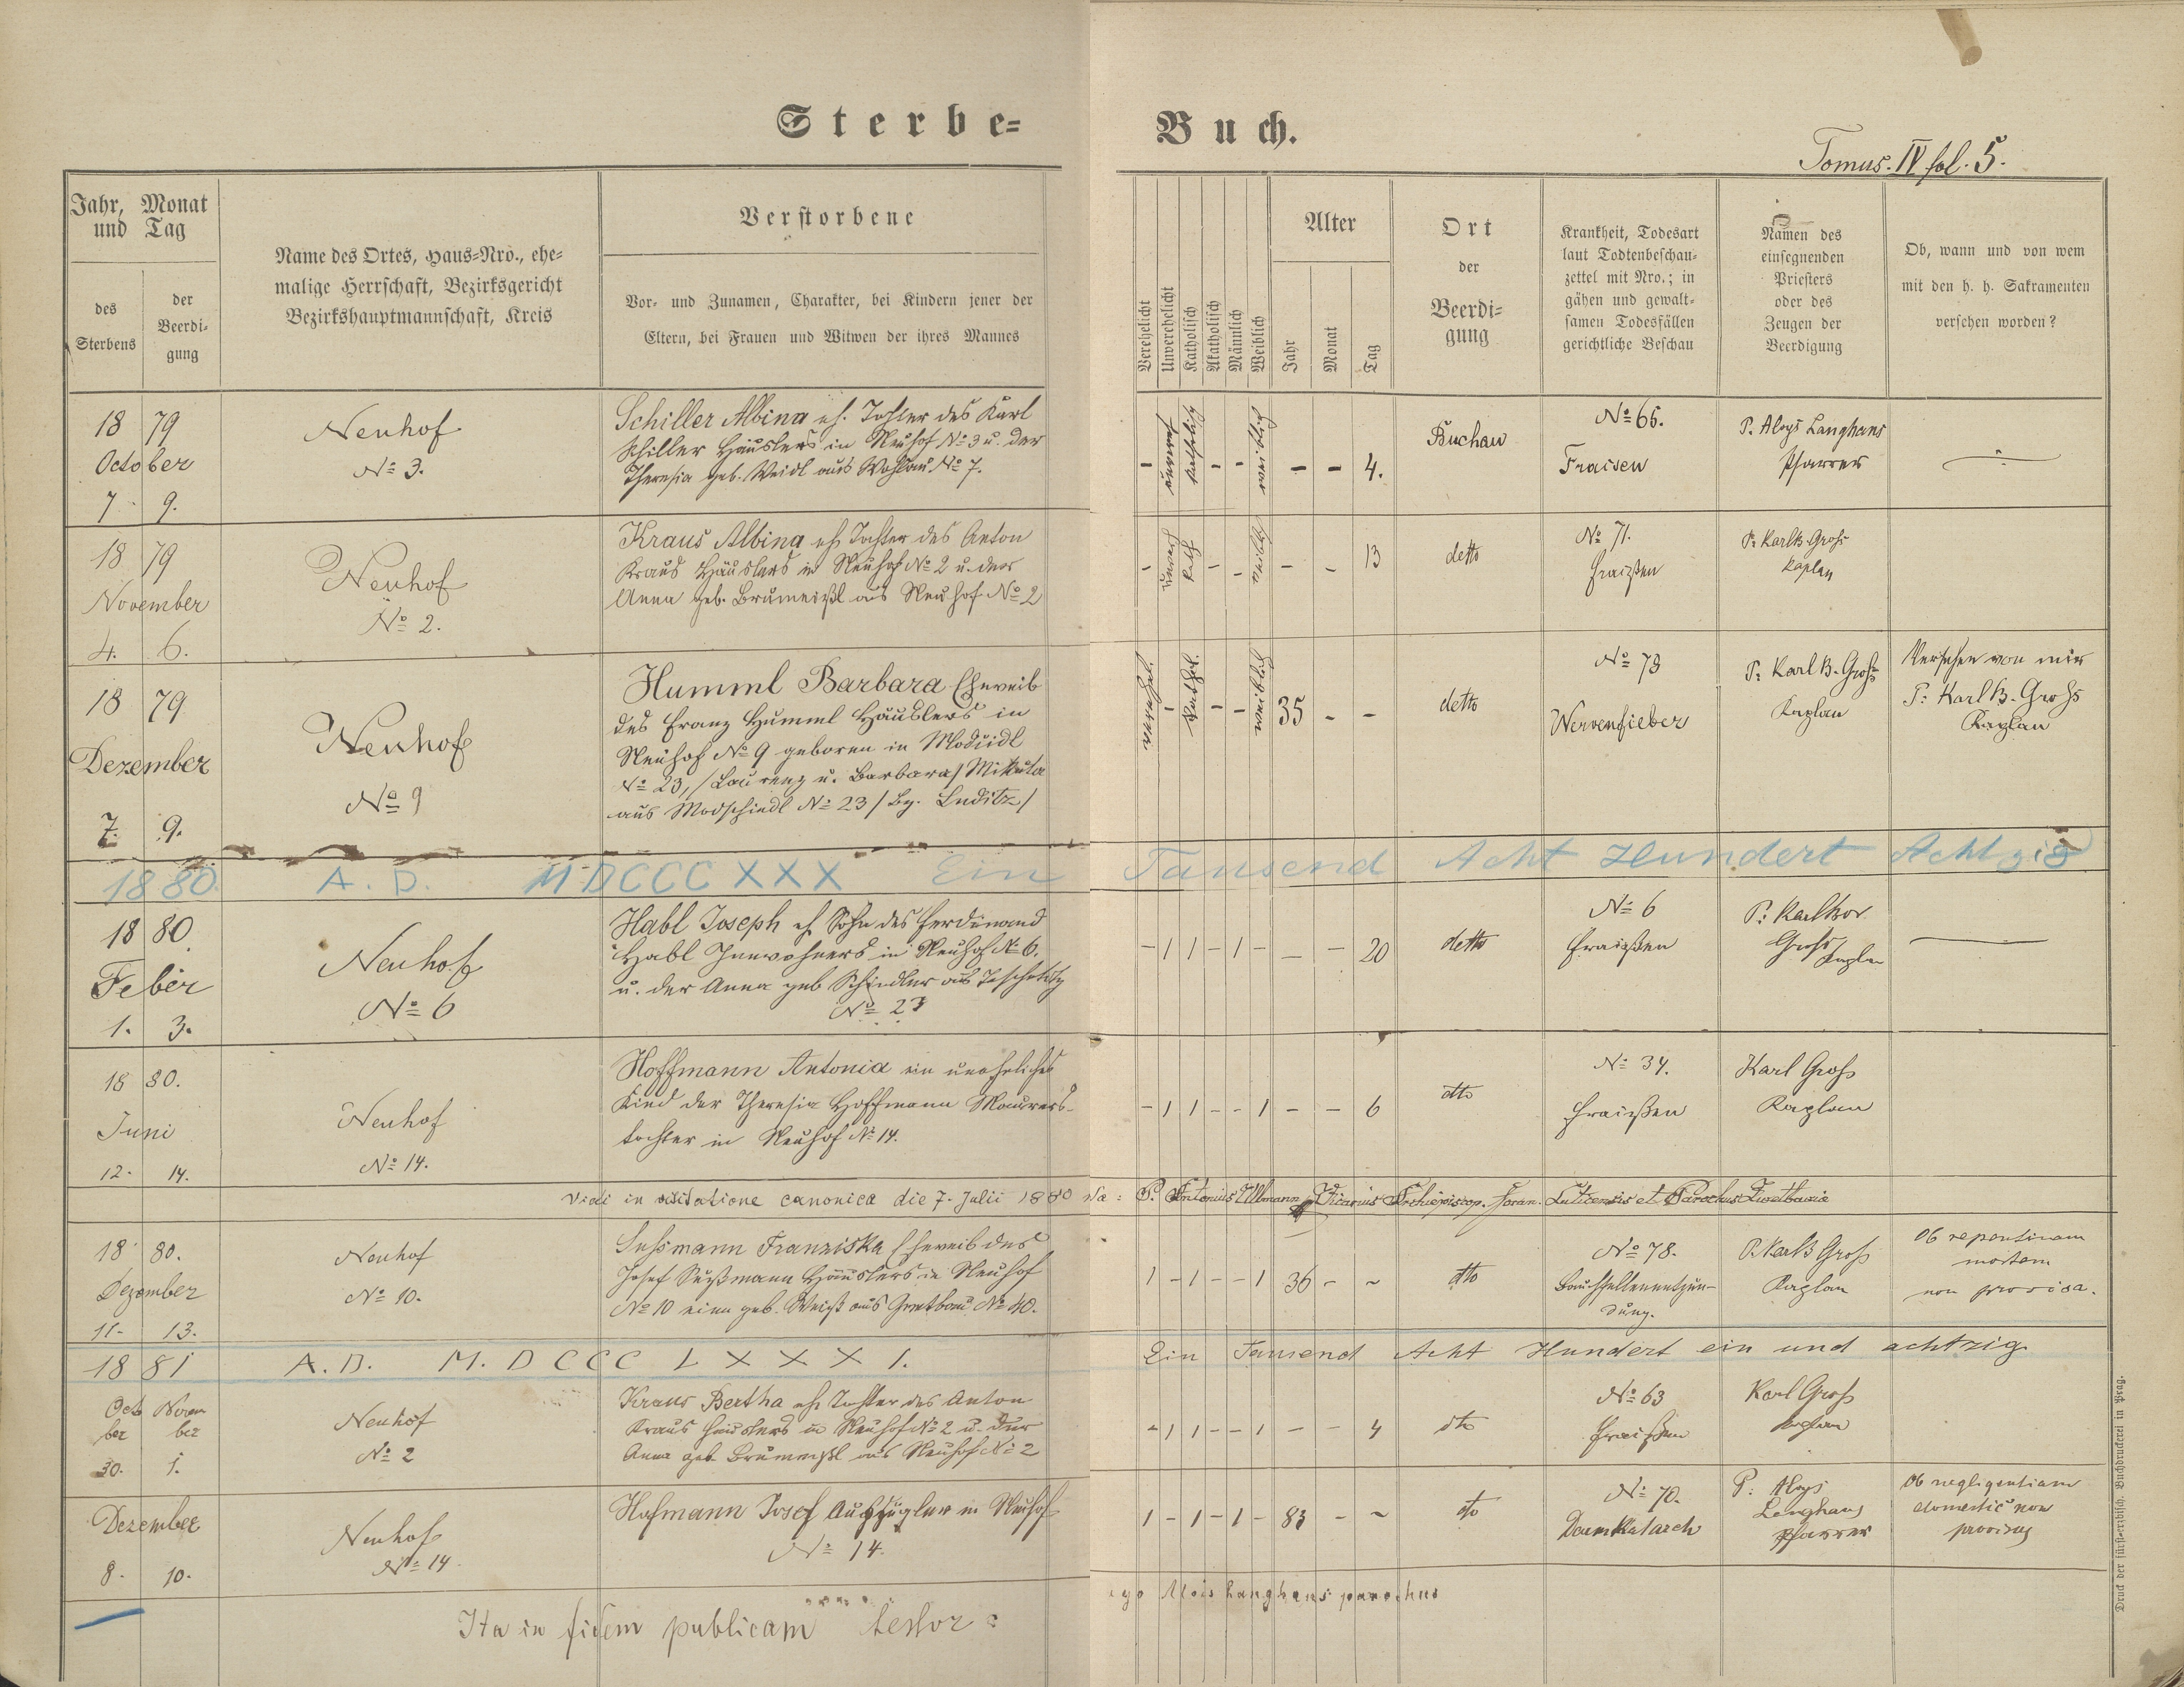 Sterbe-
Buch.
Tomus. IV fol. 5.
Jahr, Monat
und Tag
des
Sterbens
der
Beerdi-
gung
Name des Ortes, Haus-Nro., ehe-
malige Herrschaft, Bezirksgericht
Bezirkshauptmannschaft, Kreis
Verstorbene
Vor- und Zunamen, Charakter, bei Kindern jener der
Eltern, bei Frauen und Witwen der ihres Mannes
Verehelicht
Unverehelicht
Katholisch
Akatholisch
Männlich
Weiblich
Alter
Jahr
Monat
Tag
Ort
der
Beerdi-
gung
Krankheit, Todesart
laut Todtenbeschau-
zettel mit Nro.; in
gähen und gewalt-
samen Todesfällen
gerichtliche Beschau
Namen des
einsegnenden
Priesters
oder des
Zeugen der
Beerdigung
Ob, wann und von wem
mit den h. h. Sakramenten
versehen worden?
18 79
October
7. 9.
Neuhof
No 3.
Schiller Albina eh. Tochter des Karl
Schiller Häuslers in Neuhof No 3 u. der
Theresia geb. Weidl aus Wohlau No 7.
- - - - - 4.
Buchau
No 65.
Fraisen
P. Aloys Langhans
Pfarrer
18 79
November
4. 6.
Neuhof
No 2.
Kraus Albina eh Tochter des Anton
Kraus Häuslers in Neuhof No 2 u. der
Anna geb. Brumeißl aus Neuhof No 2
- - - - - 13
detto
No 71.
Fraißen
P. Karl B. Groß
Kaplan
18 79
Dezember
7. 9.
Neuhof
No 9
Humml Barbara Eheweib
des Franz Humml Häuslers in
Neuhof No 9 geboren in Moduidl
No 23, /Laurenz u. Barbara/ Mikuta
aus Modschiedl No 23 / Bz. Luditz /
- - - 35 - -
detto
No 73
Nervenfieber
P. Karl B. Groß
Kaplan
Versehen von mir
P. Karl B. Groß
Kaplan
1880. A. D. MDCCCXXX Ein Tausend Acht Hundert Achtzig
18 80
Feber
1. 3.
Neuhof
No 6
Habl Joseph eh Sohn des Ferdinand
Habl Inwohners in Neuhof No 6.
u. der Anna geb Schindler aus Teschetitz
No 23
- 1 1 - 1 - - - 20
detto
No 6
Fraißen
P. Karl Bor
Groß
Kaplan
18 80.
Juni
12. 14.
Neuhof
No 14.
Hoffmann Antonia ein uneheliches
Kind der Theresia Hoffmann Maurers-
tochter in Neuhof No 14.
- 1 1 - - 1 - - 6
dto
No 34.
Fraißen
Karl Groß
Kaplan
Vidi in visitatione canonica die 7. Julii 1880 P. Antonius Ullmann Vicarius Archiepiscop. foran. Luticensis et Parochus
18 80.
Dezember
11- 13.
Neuhof
No 10.
Sußmann Franziska Eheweib des
Josef Sußmann Häuslers in Neuhof
No 10 eine geb. Weiß aus No 40.
1 - 1 - - 1 36 - -
dto
No 78.
Bauchfellenentzün-
dung.
P. Karl B Groß
Kaplan
Ob repentinam
mortem
non provisa.
18 81 A. D. M. D CCC L X X X I. Ein Tausend Acht Hundert ein und achtzig
Octo Novem
ber ber
30. 1.
Neuhof
No 2
Kraus Bertha eh Tochter des Anton
Kraus Häuslers in Neuhof No 2 u. der
Anna geb. Brumeißl aus Neuhof No 2
- 1 1 - - 1 - - 4
dto
No 63
Fraißen
Karl Groß
Kaplan
Dezember
8. 10.
Neuhof
No 14
Hofmann Josef Auszügler in Neuhof
No 14.
1 - 1 - 1 - 83 - -
dto
No 70.
Darmkatarrh
P. Aloys
Langhans
Pfarrer
Ob negligentiam
domestic non
provisus
Ita in fidem publicam testor:
ego Alois Langhans parochus
Druck der fürst-erzbisch. Buchdruckerei in Prag.